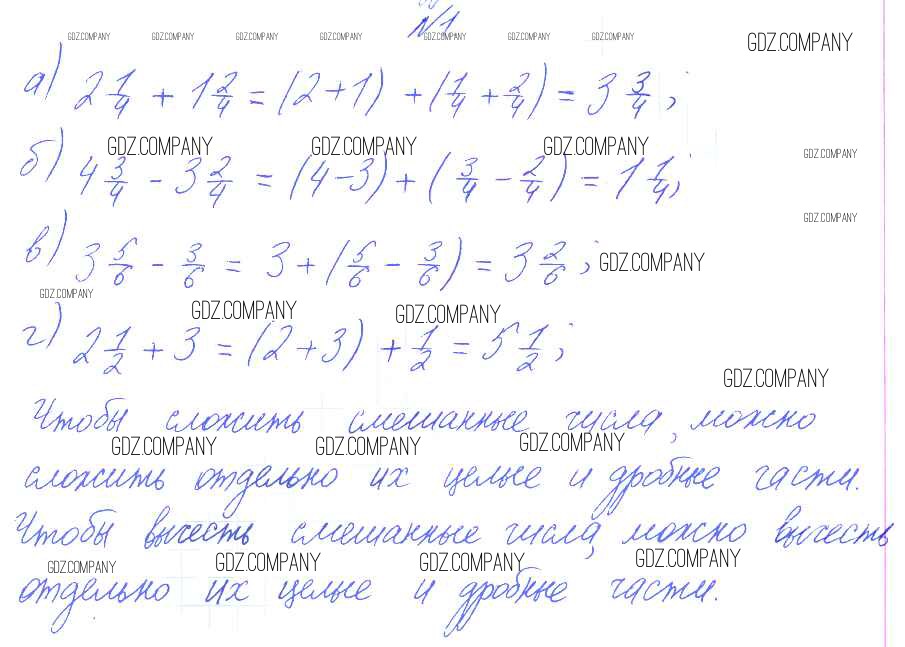 №1
GDZ.COMPANY GDZ.COMPANY GDZ.COMPANY GDZ.COMPANY GDZ.COMPANY GDZ.COMPANY GDZ.COMPANY GDZ.COMPANY
а) 2 1/4 + 1 2/4 = (2+1) + (1/4 + 2/4) = 3 3/4;
GDZ.COMPANY GDZ.COMPANY GDZ.COMPANY GDZ.COMPANY
б) 4 3/4 - 3 2/4 = (4-3) + (3/4 - 2/4) = 1 1/4;
GDZ.COMPANY
в) 3 5/6 - 3/6 = 3 + (5/6 - 3/6) = 3 2/6; GDZ.COMPANY
GDZ.COMPANY GDZ.COMPANY GDZ.COMPANY
г) 2 1/2 + 3 = (2+3) + 1/2 = 5 1/2;
GDZ.COMPANY
Чтобы сложить смешанные числа, можно
GDZ.COMPANY GDZ.COMPANY GDZ.COMPANY
сложить отдельно их целые и дробные части.
Чтобы вычесть смешанные числа, можно вычесть
GDZ.COMPANY GDZ.COMPANY GDZ.COMPANY GDZ.COMPANY
отдельно их целые и дробные части.